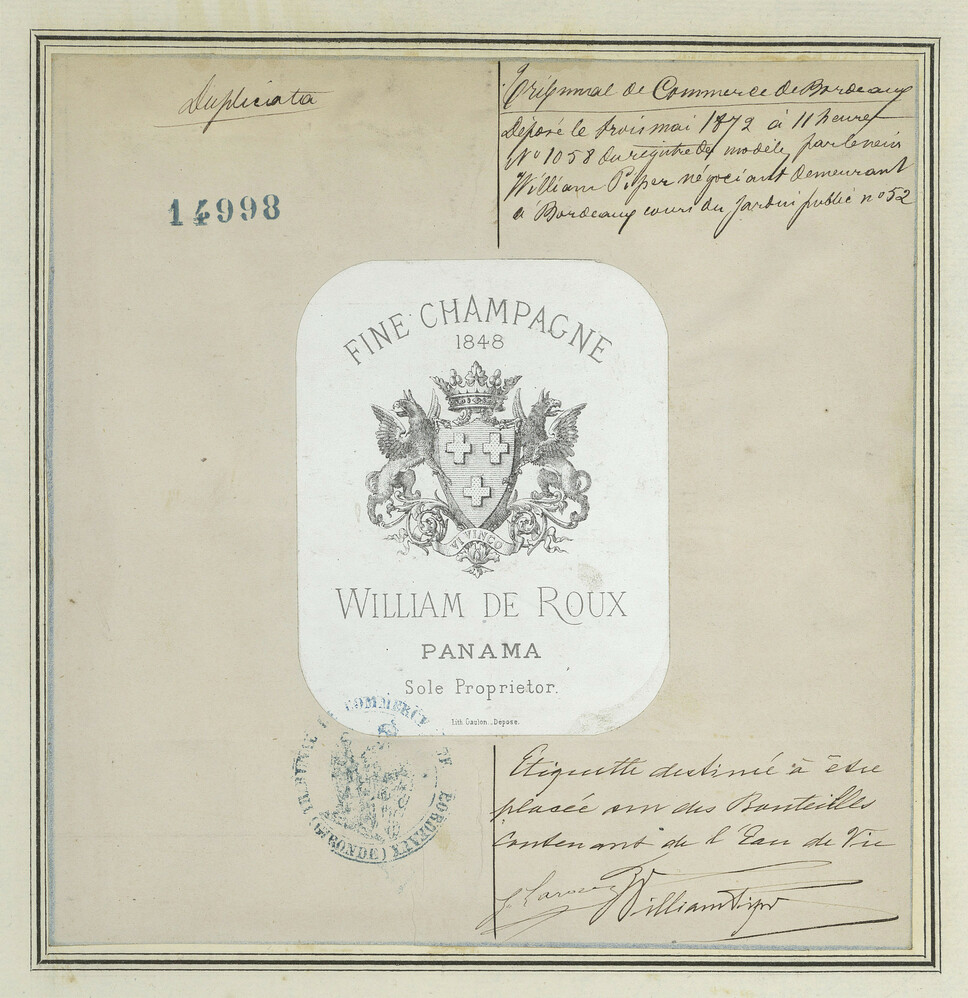 Duplicata
14998
Tribunal de Commerce de Bordeaux
Déposé le trois mai 1872 à 11 heures
No 1058 du registre des modèles par
William Piper négociant demeurant
à Bordeaux cours du Jardin public no 52
FINE CHAMPAGNE
1848
VI VINCO
WILLIAM DE ROUX
PANAMA
Sole Proprietor.
Lith Gaulon. Déposé.
TRIBUNAL DE COMMERCE DE BORDEAUX (GIRONDE)
Etiquette destinée à être
placée sur des Bouteilles
Contenant de l'Eau de Vie
William Piper